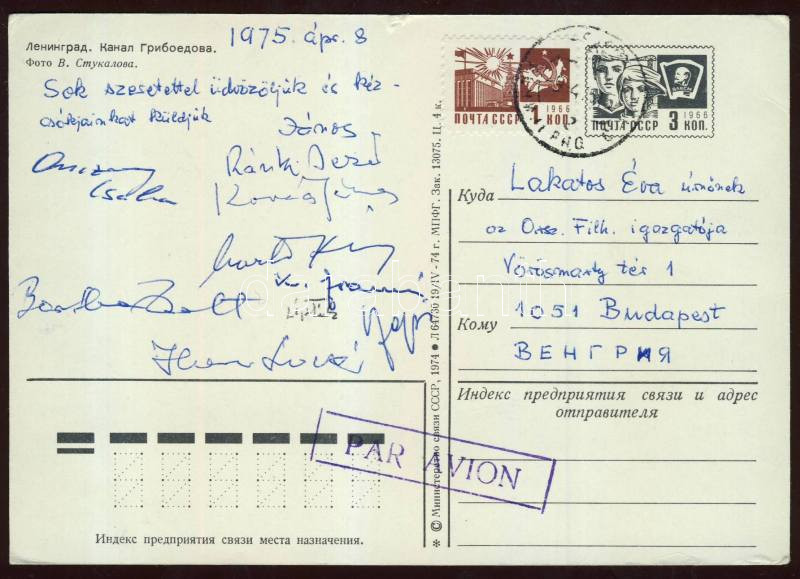 1975. ápr. 8
Ленинград. Канал Грибоедова.
Фото В. Стукалова.
Sok szeretettel üdvözöljük és kéz-
csókjainkat küldjük
János
Ránki Dezső
Csaba
Kovács János
Zsolt
ПОЧТА СССР
1966
ПОЧТА СССР
1966
3 КОП.
Куда
Lakatos Éva úrnőnek
az Orsz. Filh. igazgatója
Vörösmarty tér 1
Кому
1051 Budapest
ВЕНГРИЯ
Индекс предприятия связи и адрес
отправителя
PAR AVION
Индекс предприятия связи места назначения.
* © Министерство связи СССР, 1974 • Л 64730 19/IV-74 г. МПФГ. Зак. 13075. Ц. 4 к.
darabanth